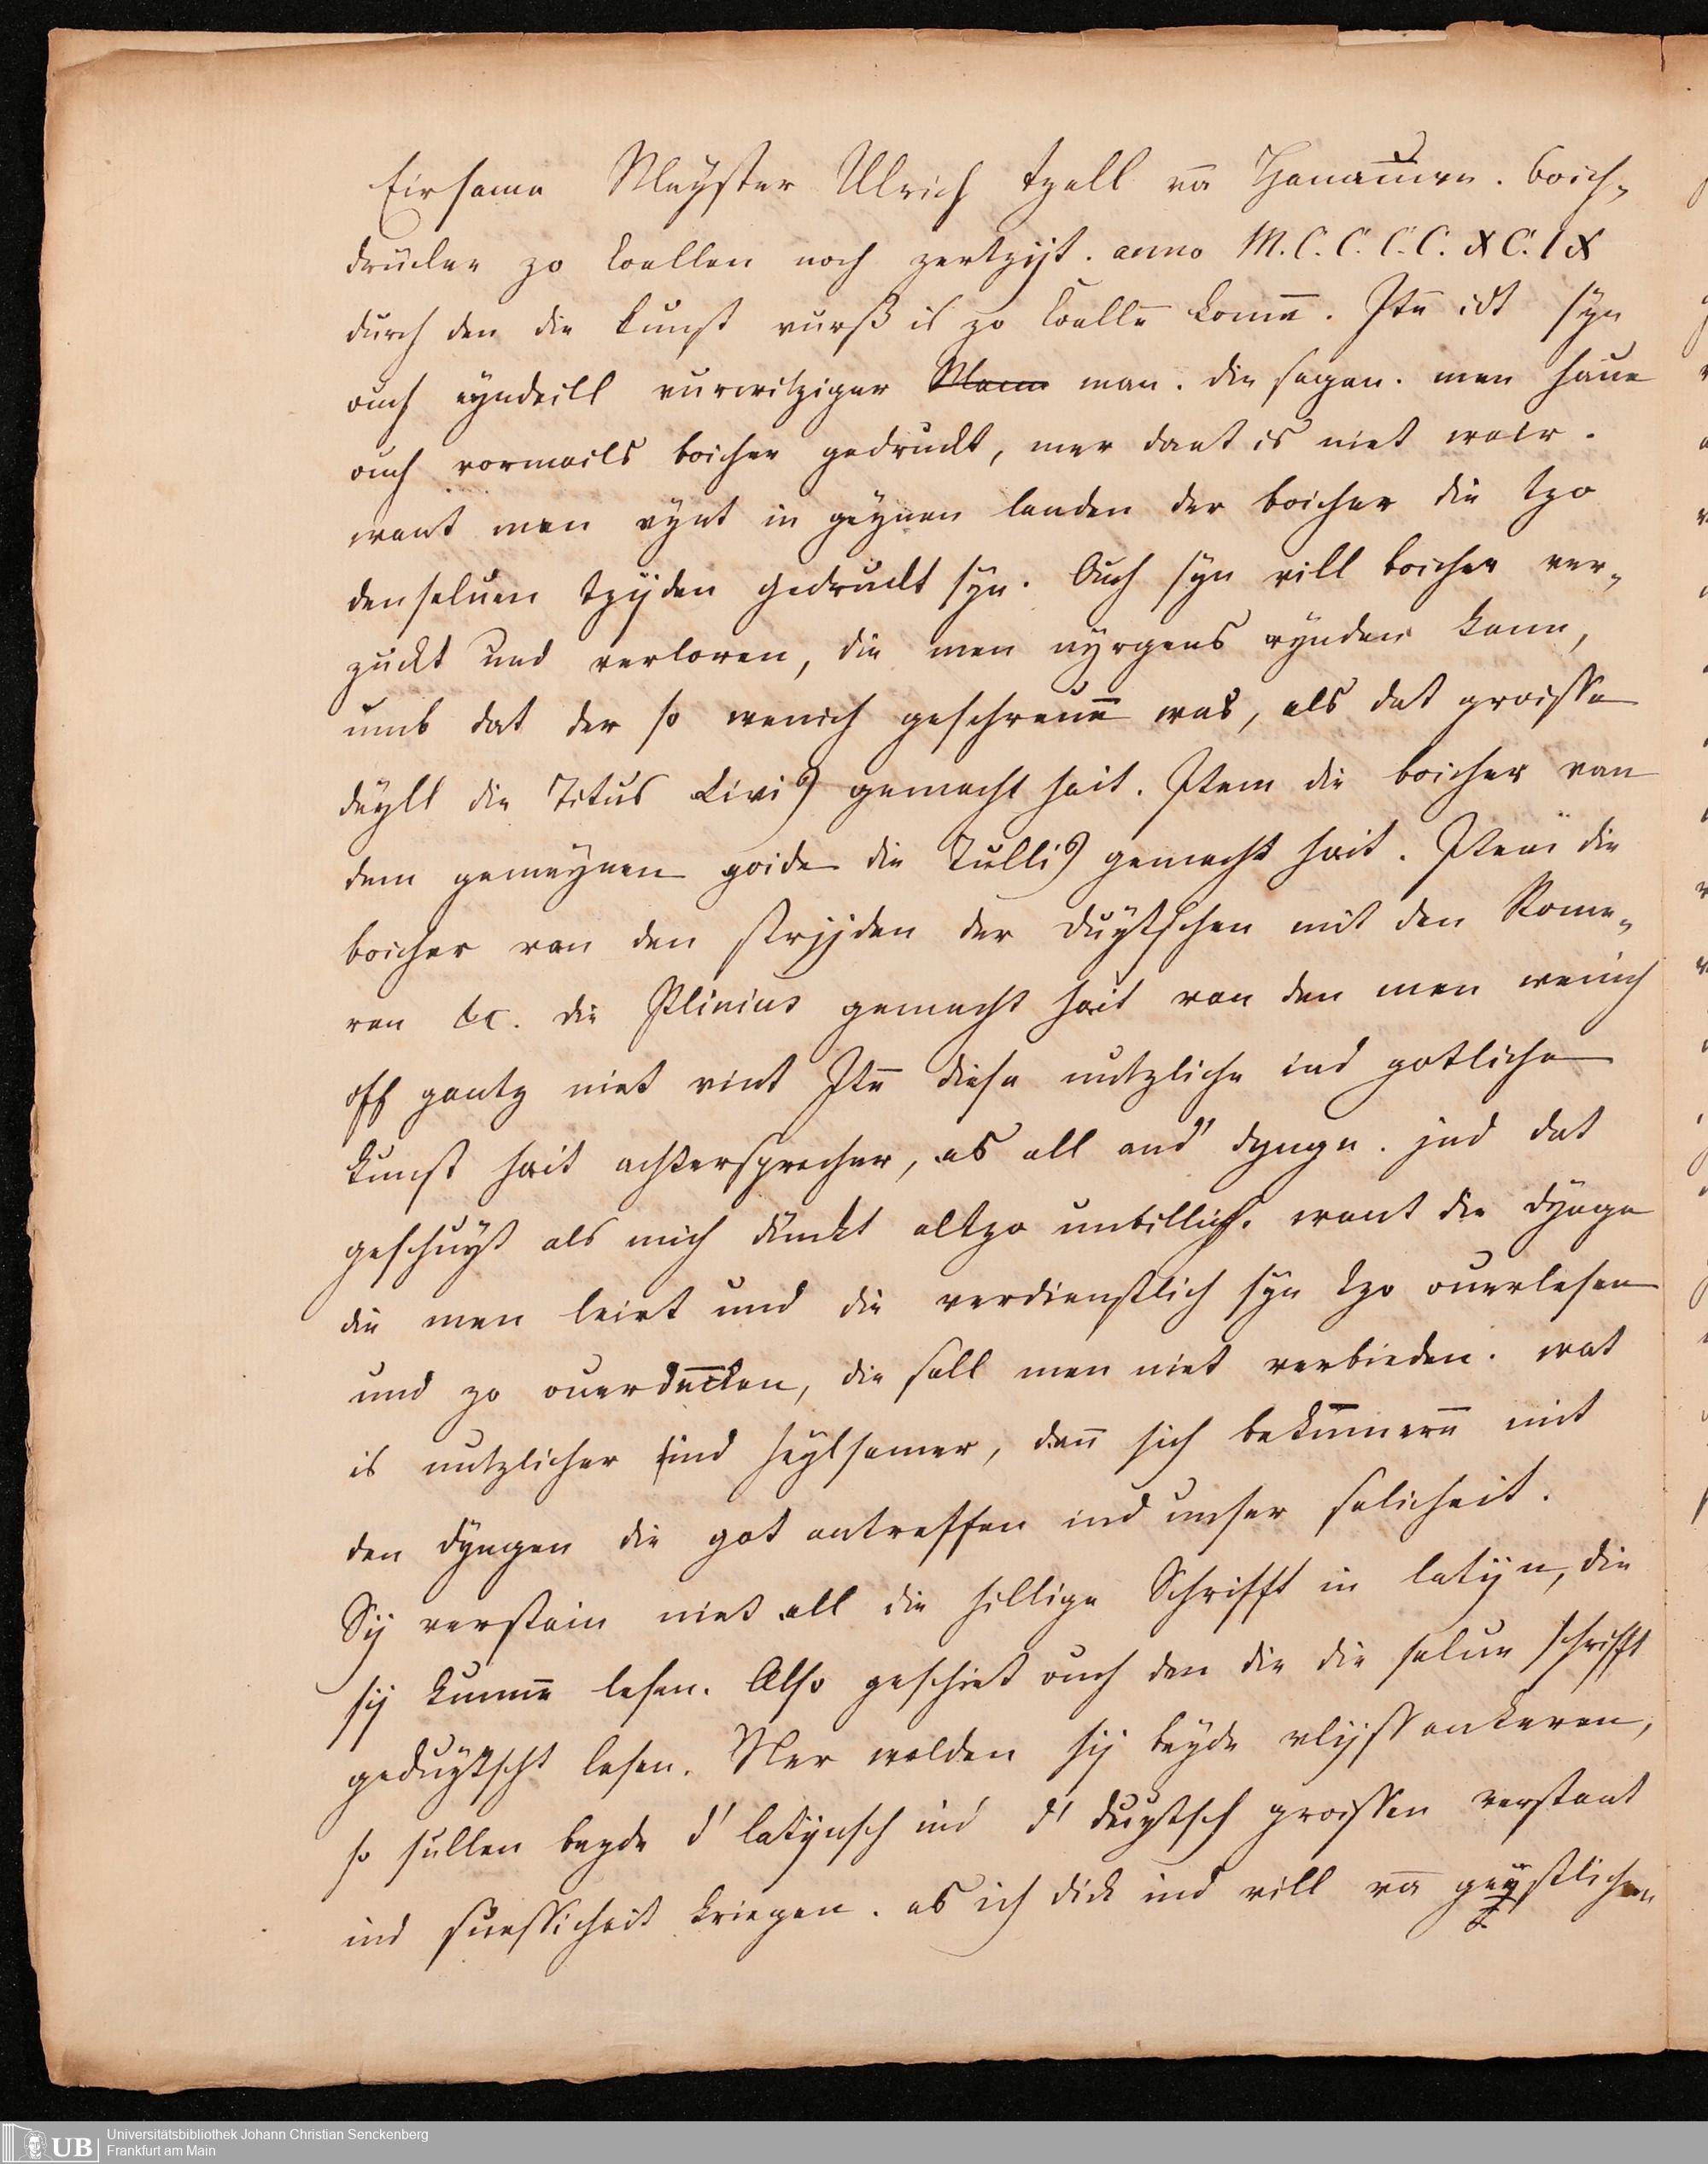 Eirsame Meyster Ulrich tzell vā Hanauwe. boich-
drucker zo Coellen noch zertzijt. anno M.C.C.C.C.XC.IX
durch den die kunst vurß is zo Coellē komē. Itē idt syn
ouch eyndeill vurwitziger Mann man. die sagen. men haue
ouch vormails boicher gedruckt, mer dant is niet wair.
want men vynt in geynen landen der boicher die tzo
denseluen tzijden gedruckt syn. Ouch syn vill boicher ver-
zuckt und verloren, die men nyrgens vynden kann,
umb dat der so wenich geschreuē was, als dat groisse
deyll die Titus Livi9 gemacht hait. Item die boicher van
dem gemeynen goide die Tulli9 gemacht hait. Item die
boicher van den strijden der duytschen mit den Rome-
ren &c. die Plinius gemacht hait van den men wenich
off gantz niet vint Itē diese nutzliche ind gotliche
kunst hait achtersprecher, as all and" dynge. jnd dat
geschuyt als mich dunckt altzo unbillich. want die dynge
die men leirt und die verdienstlich syn tzo ouerlesen
und zo ouerdēcken, die sall men niet verbieden. wat
is nutzlicher ind heylsamer, dan̄ sich bekūmerē mit
den dyngen die got antreffen ind unser selicheit.
Sij verstain niet all die hillige Schrifft in latijn, die
sij kunnē lesen. Also geschiet ouch den die die selue schrifft
geduytscht lesen. Mer wolden sij beyde vlijss ankeren,
so sullen beyde d' latijnsch ind d' duytsch groissen verstant
ind suessicheit kriegen. as ich dick ind vill vā geystlichen
Universitätsbibliothek Johann Christian Senckenberg
Frankfurt am Main
UB